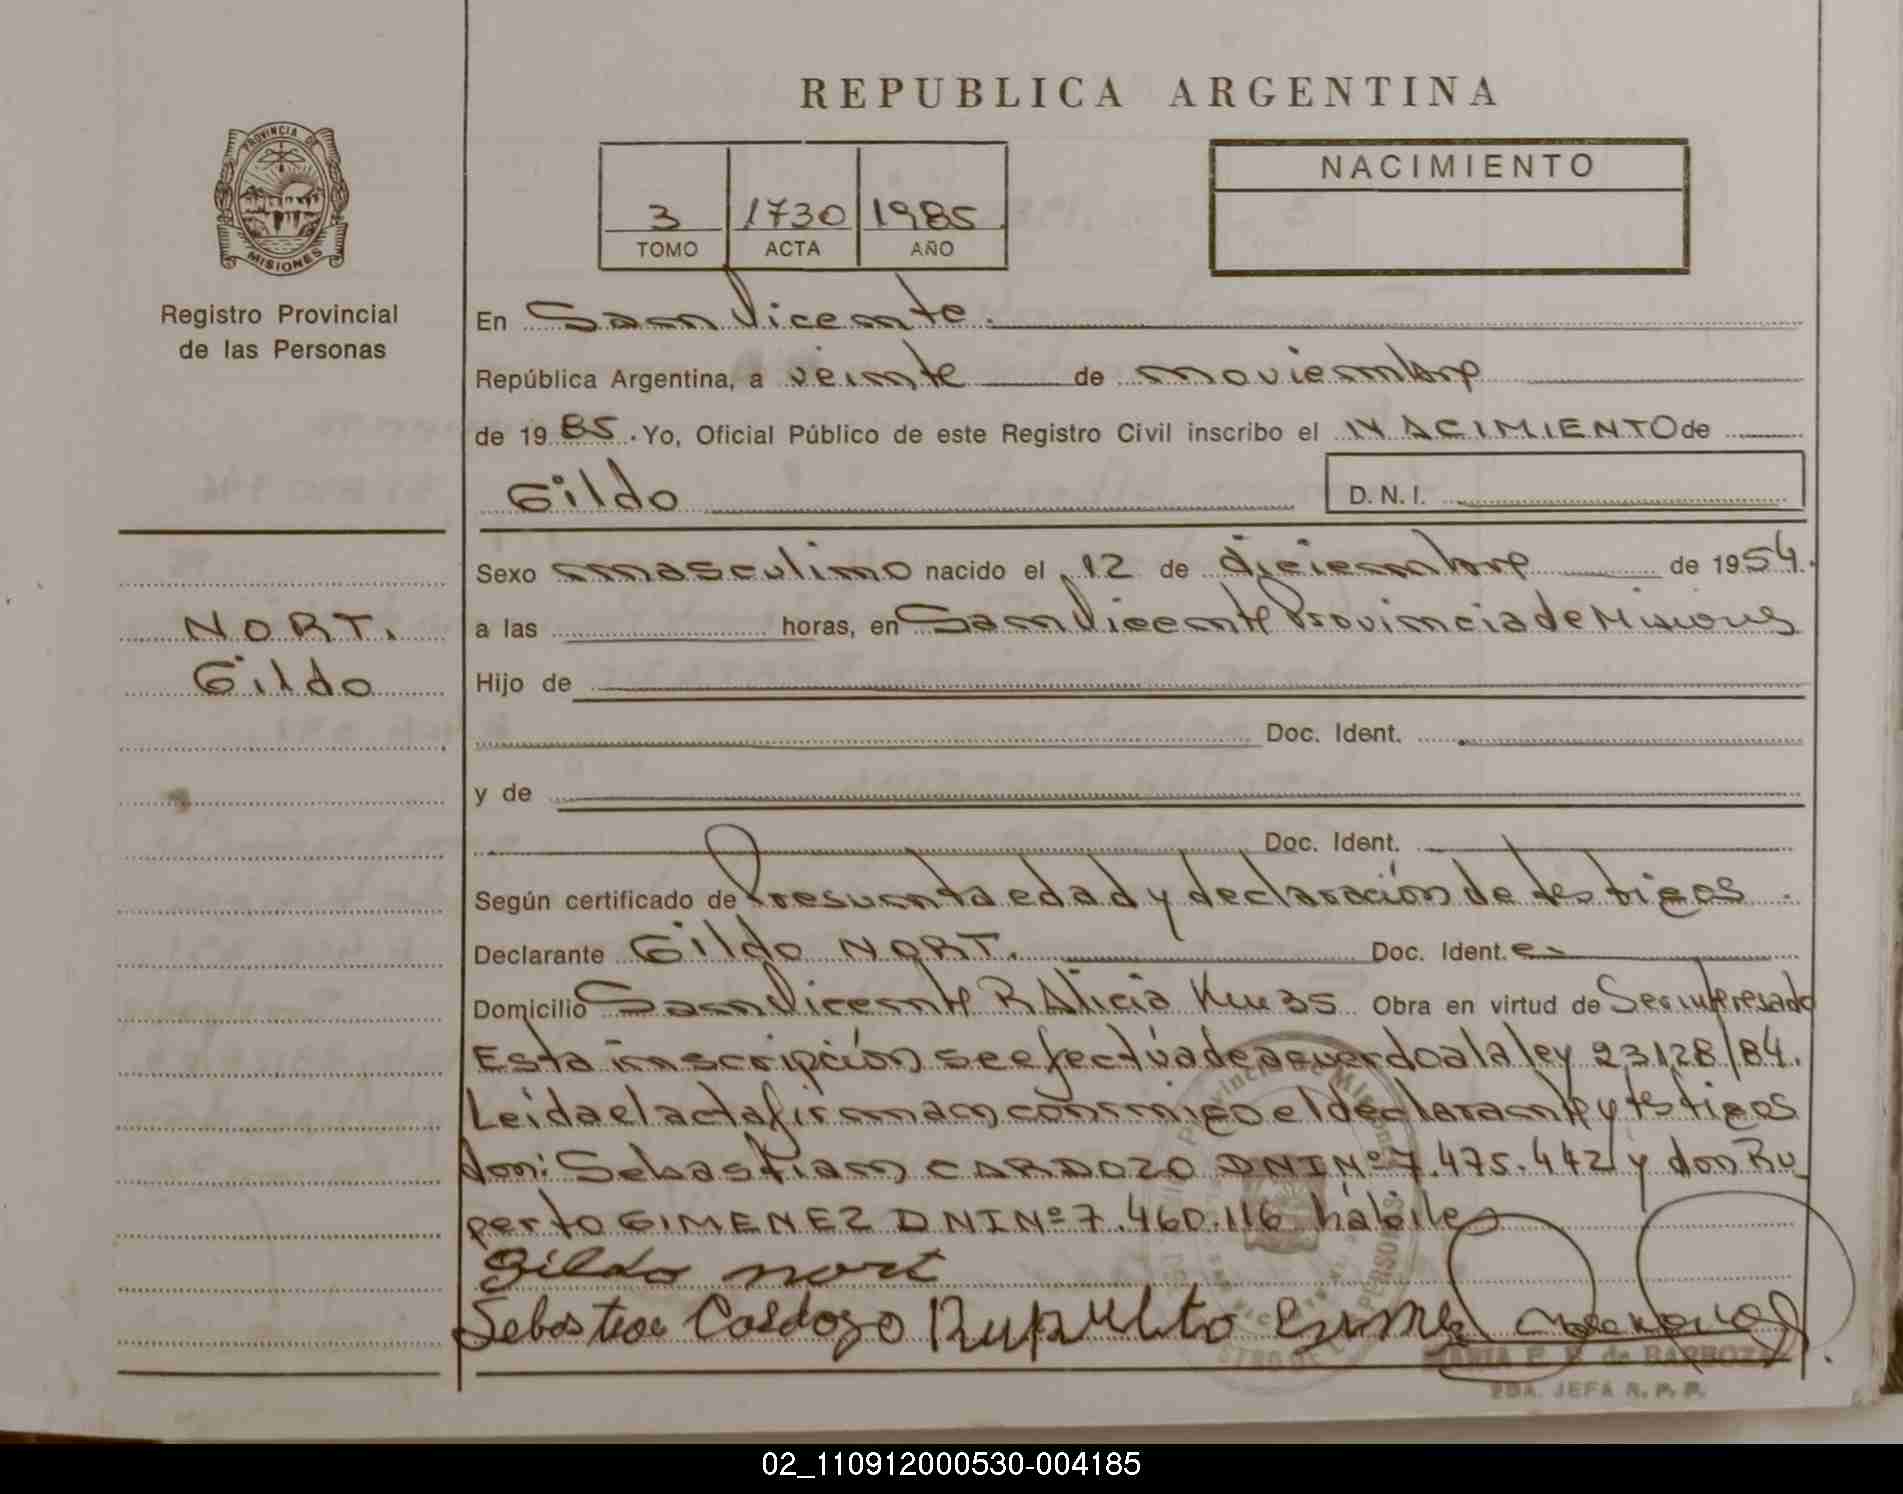 REPUBLICA ARGENTINA
PROVINCIA DE
MISIONES
Registro Provincial
de las Personas
3 1730 1985
TOMO ACTA AÑO
NACIMIENTO
En San Vicente.
República Argentina, a veinte de noviembre
de 1985. Yo, Oficial Público de este Registro Civil inscribo el NACIMIENTO de
Gildo D.N.I.
Sexo masculino nacido el 12 de diciembre de 1954.
NORT.
Gildo
a las horas, en San Vicente Provincia de Misiones
Hijo de
Doc. Ident.
y de
Doc. Ident.
Según certificado de Presunta edad y declaración de testigos.
Declarante Gildo NORT. Doc. Ident.
Domicilio San Vicente B Alicia Km 35 Obra en virtud de Ser interesado
Esta inscripción se efectúa de acuerdo a la ley 23.128/84.
Leida el acta firman conmigo el declarante y testigos
don: Sebastian CARDOZO DNI Nº 7.475.442 y don Ru
perto GIMENEZ DNI Nº 7.460.116 hábiles
Gildo nort
Sebastian Cardozo Ruperto
MARIA E. de BARBOZA
2DA. JEFA R. P. P.
02_110912000530-004185